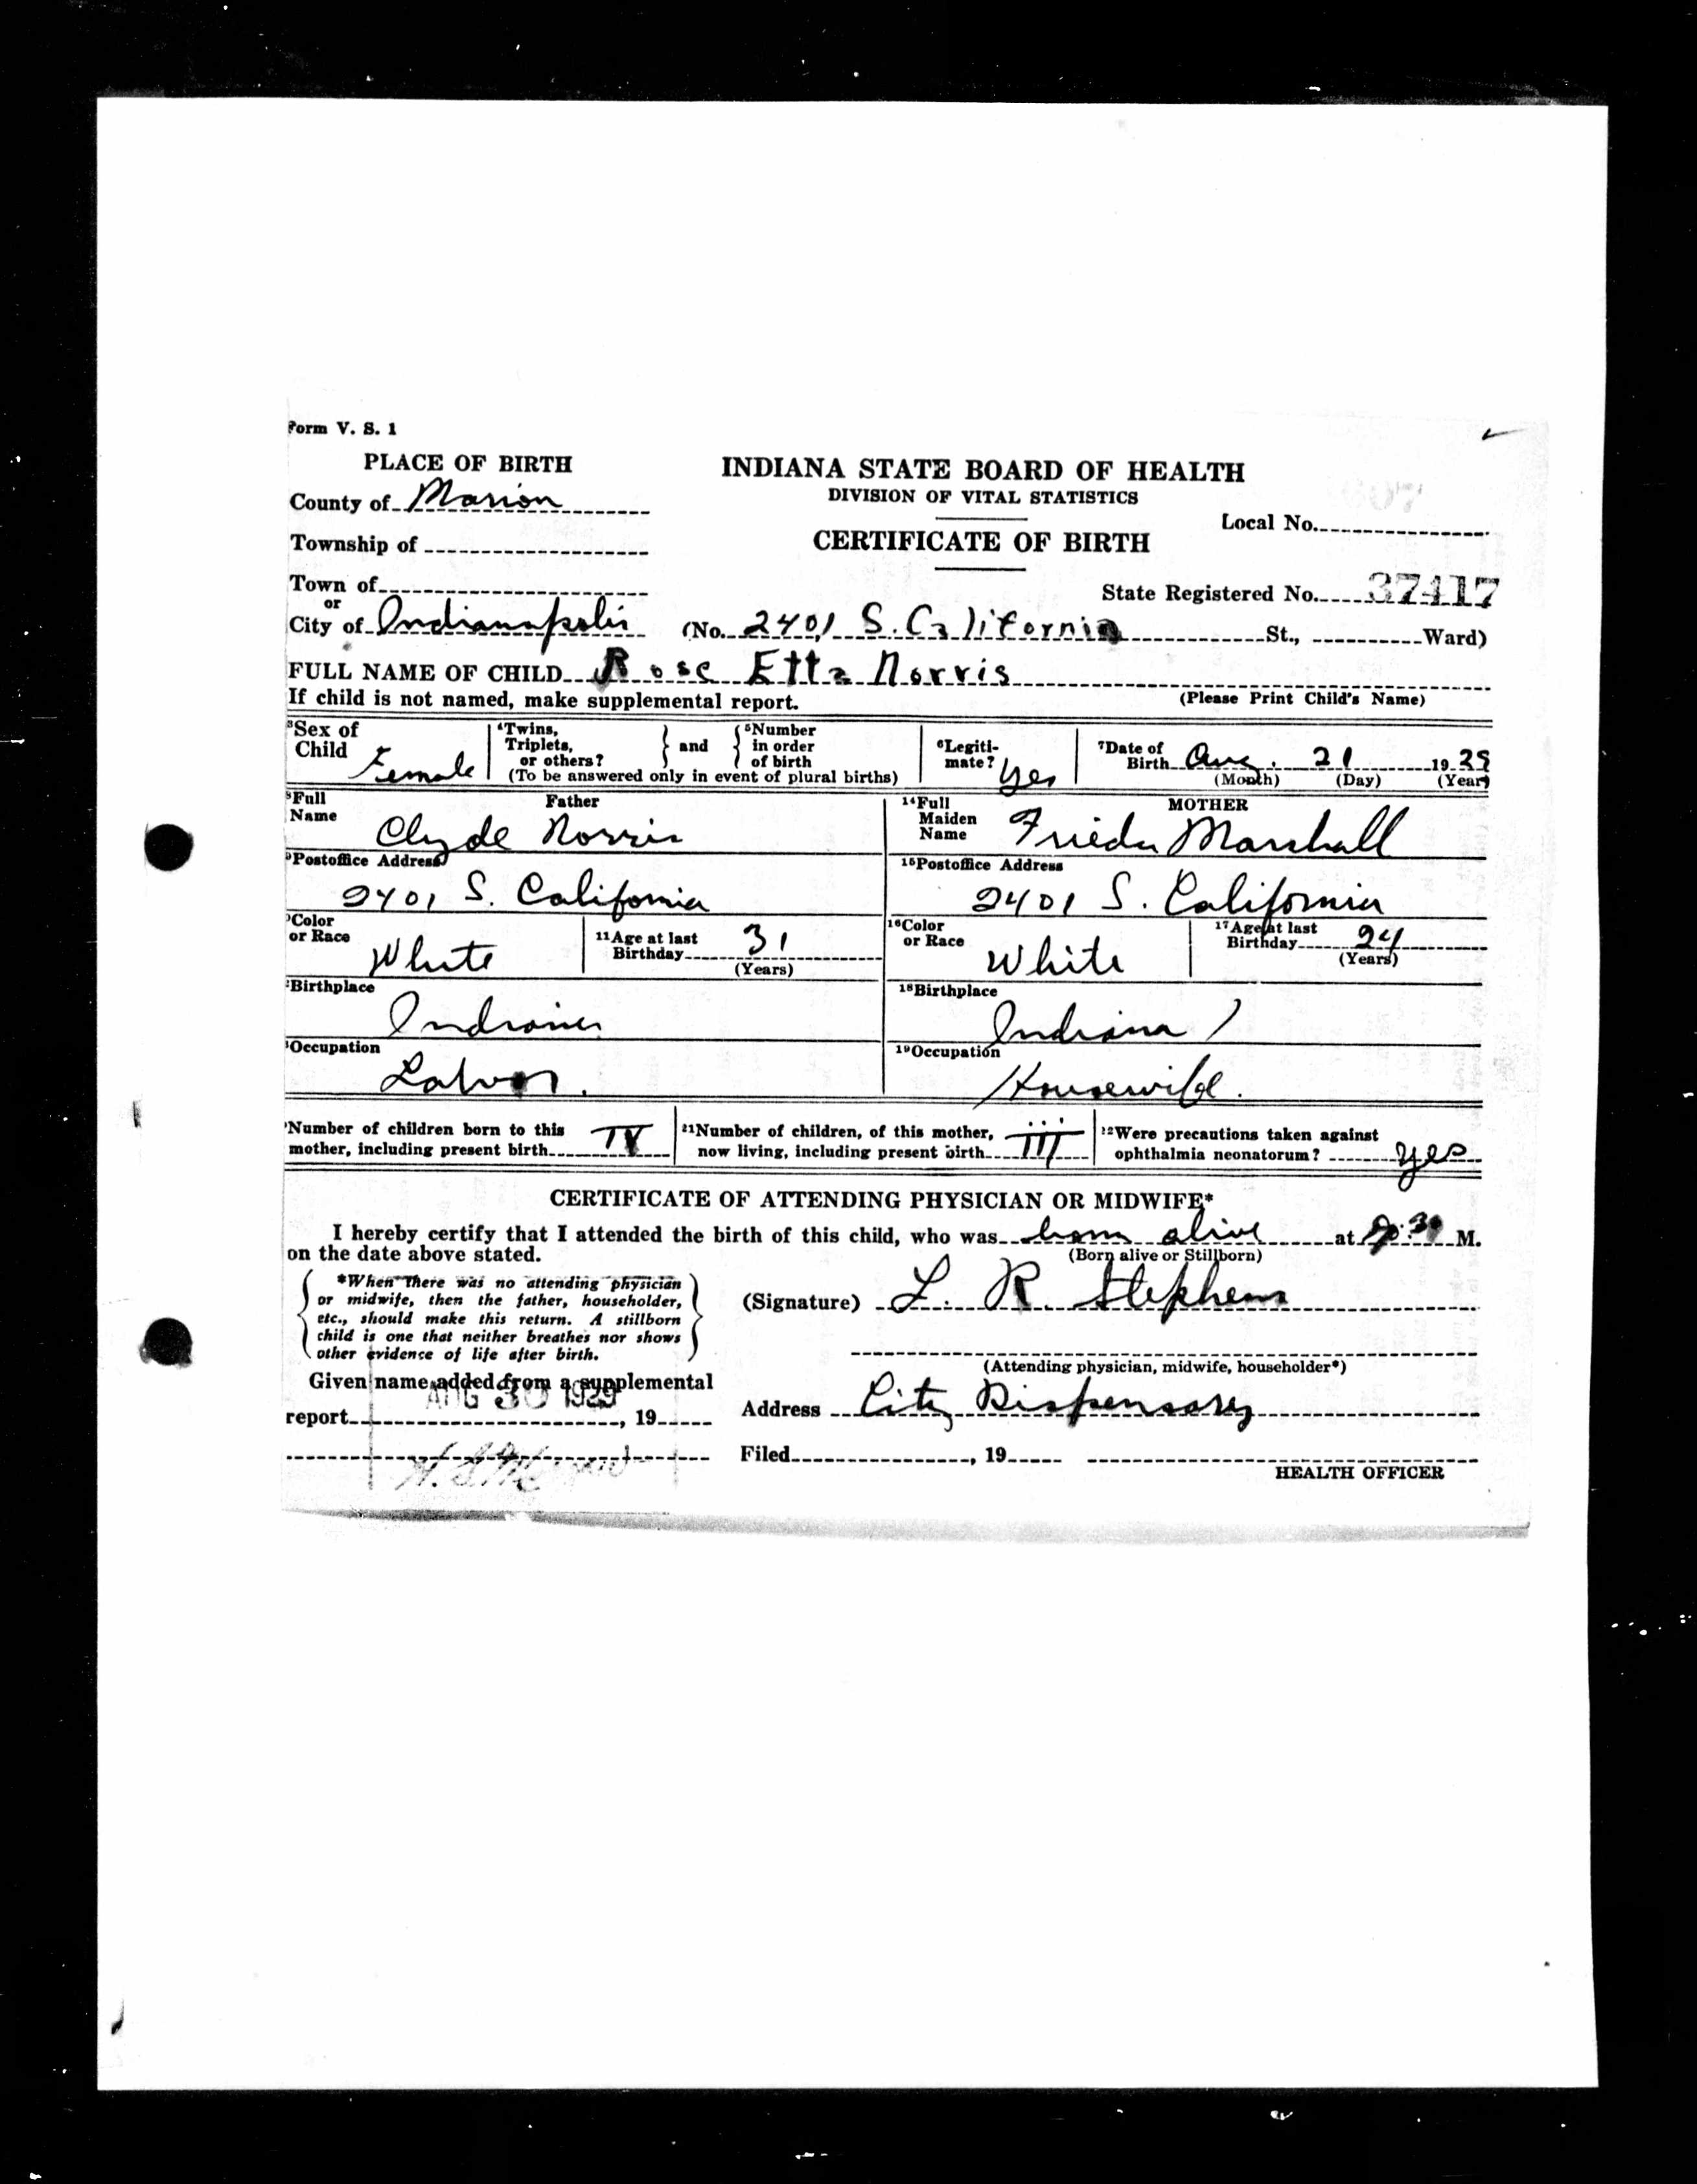 Form V. S. 1
PLACE OF BIRTH
County of Marion
Township of
Town of
or
City of Indianapolis
INDIANA STATE BOARD OF HEALTH
DIVISION OF VITAL STATISTICS
CERTIFICATE OF BIRTH
Local No.
State Registered No. 37417
(No. 2401 S. California St., Ward)
FULL NAME OF CHILD Rose Etta Norris
If child is not named, make supplemental report. (Please Print Child's Name)
3 Sex of Child Female
4 Twins, Triplets, or others? } and { 5 Number in order of birth
(To be answered only in event of plural births)
6 Legitimate? Yes
7 Date of Birth Aug. 21 1929
(Month) (Day) (Year)
8 Full Name Father
Clyde Norris
14 Full Maiden Name MOTHER
Frieda Marshall
9 Postoffice Address
2401 S. California
15 Postoffice Address
2401 S. California
Color or Race White
11 Age at last Birthday 31
(Years)
16 Color or Race White
17 Age at last Birthday 24
(Years)
Birthplace
Indiana
18 Birthplace
Indiana
Occupation
Labor.
19 Occupation
Housewife.
Number of children born to this mother, including present birth IV
21 Number of children, of this mother, now living, including present birth III
22 Were precautions taken against ophthalmia neonatorum? yes
CERTIFICATE OF ATTENDING PHYSICIAN OR MIDWIFE*
I hereby certify that I attended the birth of this child, who was born alive at M.
on the date above stated. (Born alive or Stillborn)
*When there was no attending physician
or midwife, then the father, householder,
etc., should make this return. A stillborn
child is one that neither breathes nor shows
other evidence of life after birth.
(Signature) L. R. Stephens
(Attending physician, midwife, householder*)
Given name added from a supplemental
AUG 30 1929
report , 19
Address City Dispensary
Filed , 19
HEALTH OFFICER